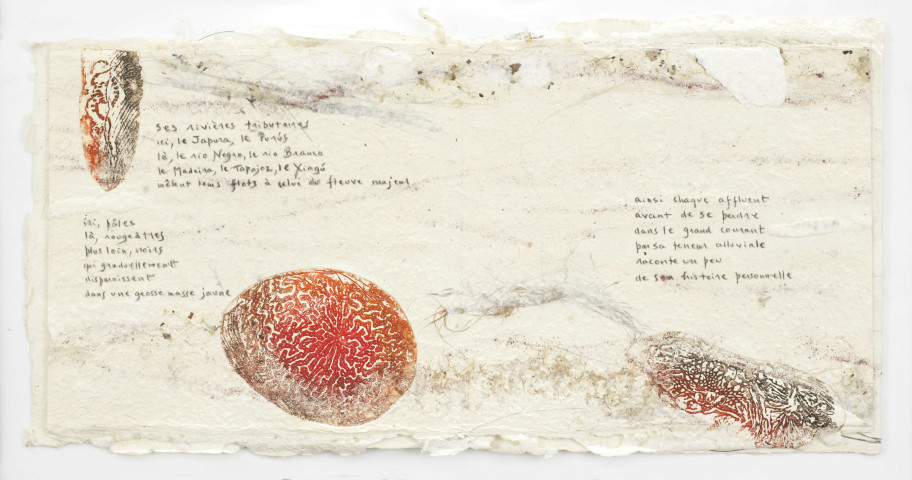 ses rivières tributaires
ici, le Japura, le Purús
là, le rio Negro, le rio Branco
le Madeira, le Tapajoz, le Xingú
mêlent leurs flots à celui du fleuve majeur
ici, pâles
là, rougeâtres
plus loin, noirs
qui graduellement
disparaissent
dans une grosse masse jaune
ainsi chaque affluent
avant de se perdre
dans le grand courant
par sa teneur alluviale
raconte un peu
de son histoire personnelle